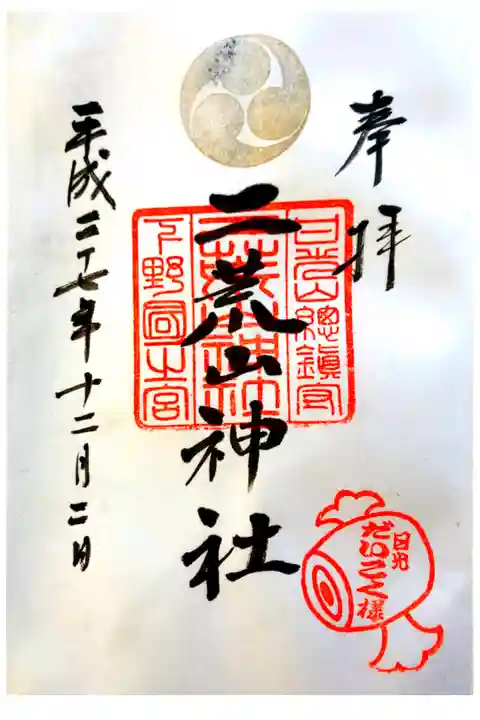 奉拝
二荒山神社
日光山總鎮守
二荒山神社
下野國一之宮
平成二十七年十二月二日
日光
だいこく様